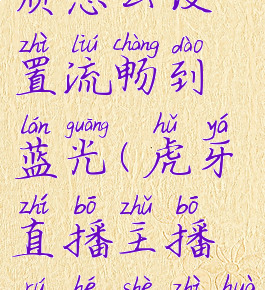 zhì liú chàng dào
置流畅到
lán guāng hǔ yá
蓝光(虎牙
zhí bō zhǔ bō
直播主播
rú hé shè zhì huà